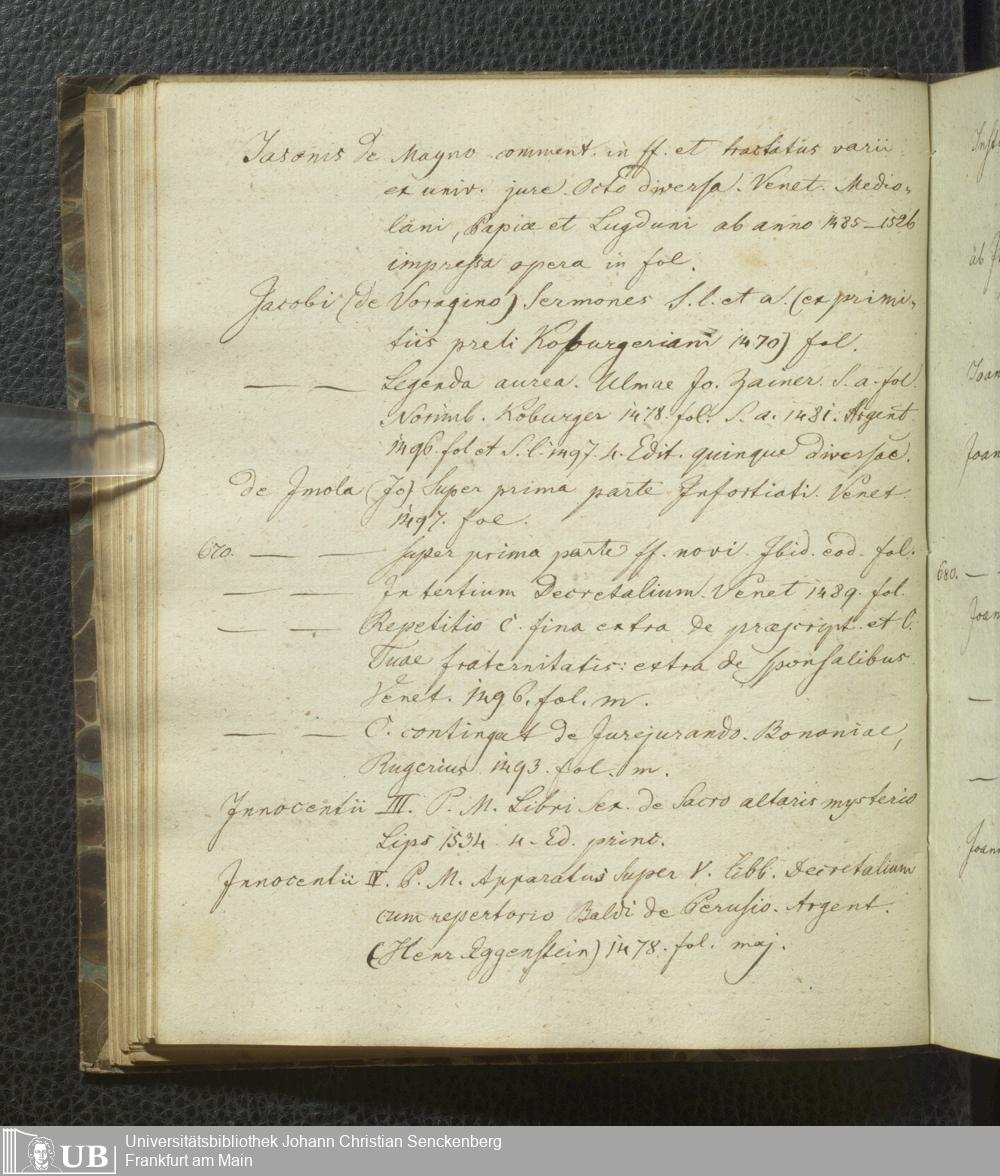 Jasonis de Mayno comment. in ff. et tractatus varii
ex univ. jure Octo diversa. Venet. Medio-
lani, Papiae et Lugduni ab anno 1485–1526
impressa opera in fol.
Jacobi (de Voragino) Sermones S. l. et a. (ex primi-
tiis preli Koburgeriani 1470) fol.
— — Legenda aurea. Ulmae Jo. Zainer. S. a. fol.
Norimb. Koburger 1478. fol. S. a. 1481. Argent.
1496. fol et S. l. 1497. 4. Edit. quinque diversae.
de Jmola (Jo) Super prima parte Jnfortiati. Venet.
1497. fol.
670. — — super prima parte ff. novi. Jbid. eod. fol.
— — Jn tertium Decretalium. Venet 1489. fol.
— — Repetitio C. fina extra de praescript. et C.
Tuae fraternitatis: extra de sponsalibus
Venet. 1496. fol. m.
— — C. contingat de Jurejurando. Bononiae,
Rugerius 1493. fol. m.
Jnnocentii III. P. M. Libri sex. de Sacro altaris mysterio
Lips 1534. 4. Ed. princ.
Jnnocentii IV. P. M. Apparatus super V. Libb. Decretalium
cum repertorio Baldi de Perusio. Argent.
(Henr. Eggenstein) 1478. fol. maj.
680. —
Universitätsbibliothek Johann Christian Senckenberg
Frankfurt am Main
UB